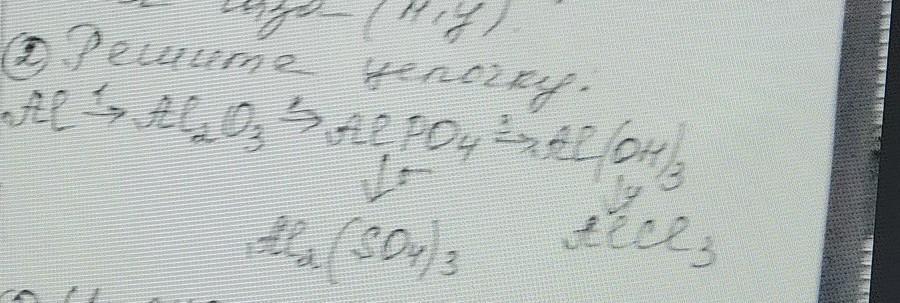 (н.у)
② Решите цепочку:
Al 1→ Al₂O₃ 2→ AlPO₄ 3→ Al(OH)₃
↓5 ↓4
Al₂(SO₄)₃ AlCl₃